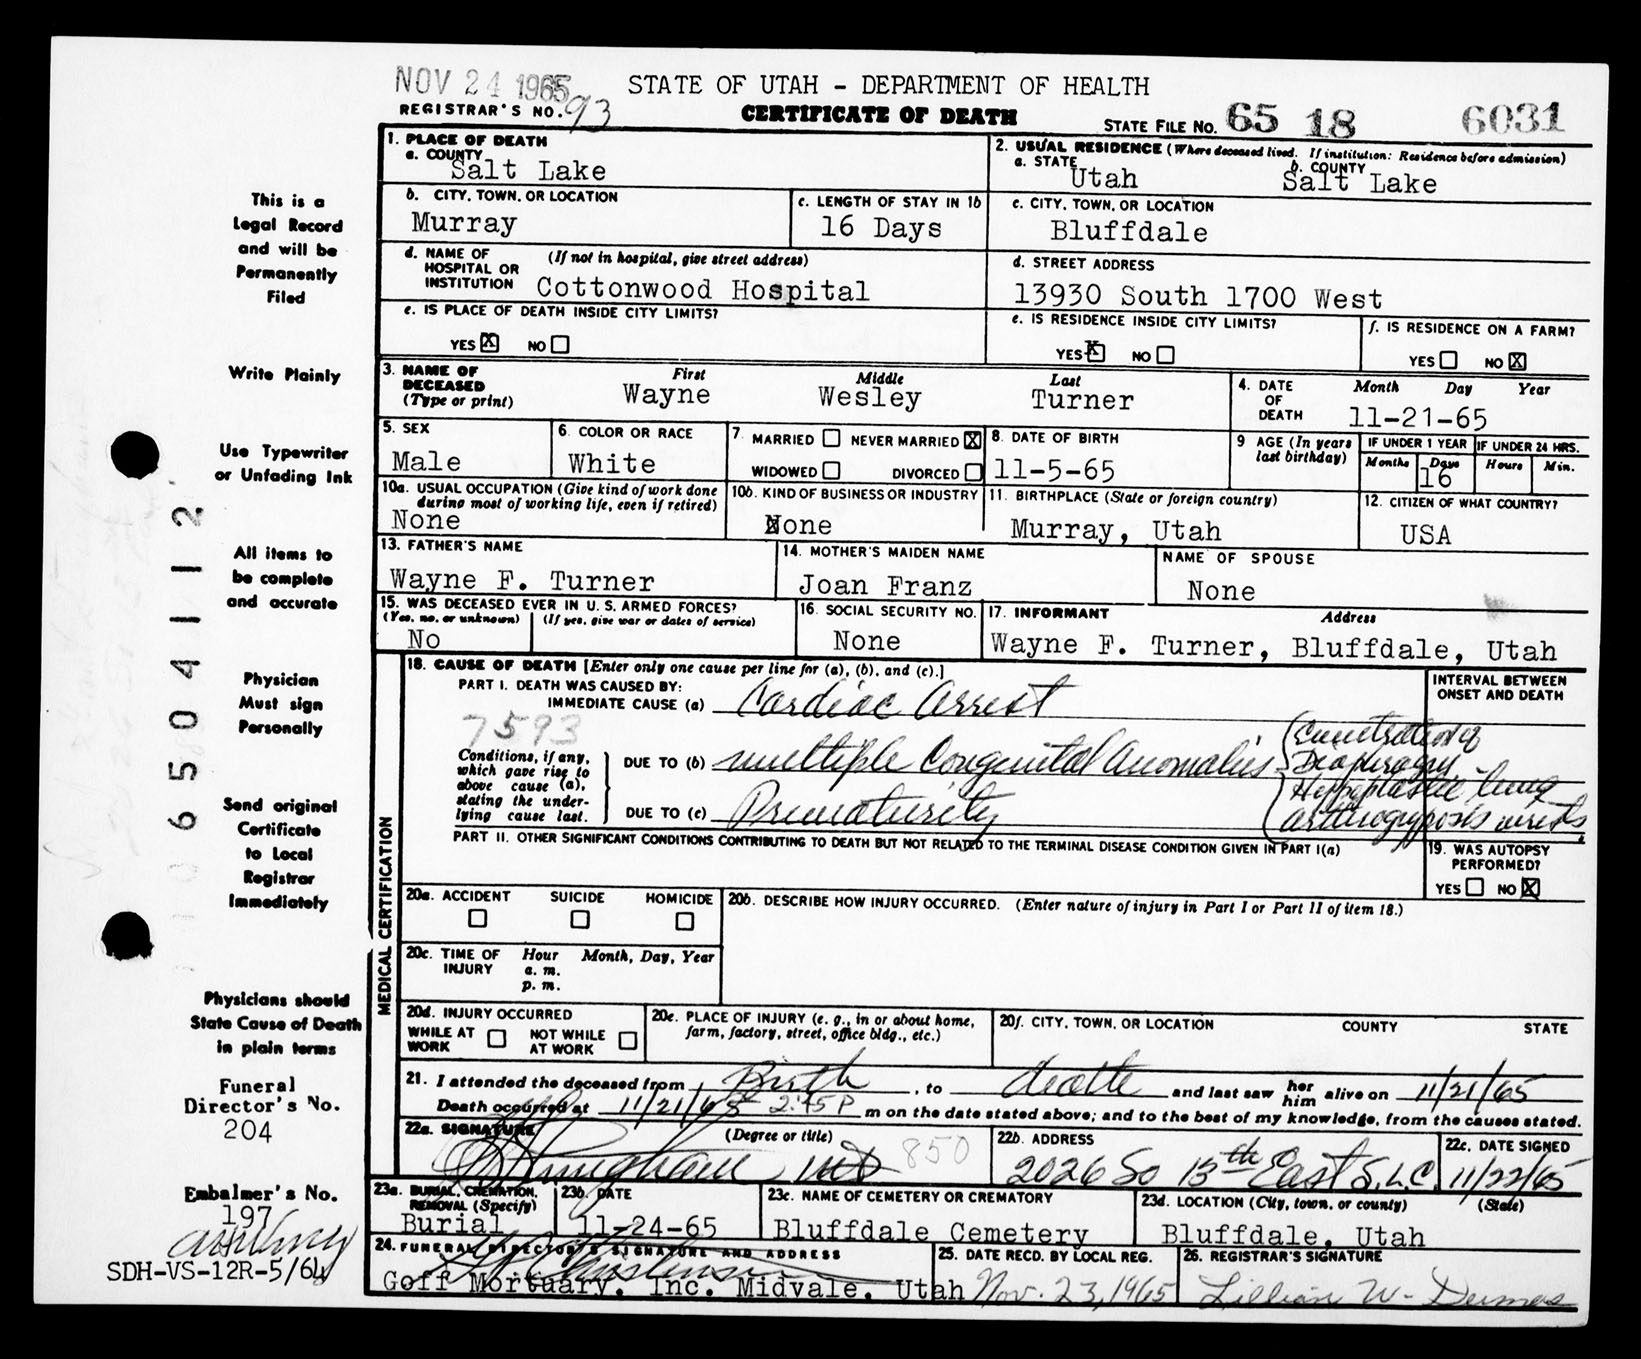 NOV 24 1965 STATE OF UTAH - DEPARTMENT OF HEALTH
REGISTRAR'S NO. 93 CERTIFICATE OF DEATH STATE FILE NO. 65 18 6031
1. PLACE OF DEATH
a. COUNTY
Salt Lake
2. USUAL RESIDENCE (Where deceased lived. If institution: Residence before admission)
a. STATE b. COUNTY
Utah Salt Lake
b. CITY, TOWN, OR LOCATION
Murray
c. LENGTH OF STAY IN 1b
16 Days
c. CITY, TOWN, OR LOCATION
Bluffdale
d. NAME OF HOSPITAL OR INSTITUTION (If not in hospital, give street address)
Cottonwood Hospital
d. STREET ADDRESS
13930 South 1700 West
e. IS PLACE OF DEATH INSIDE CITY LIMITS?
YES X NO
e. IS RESIDENCE INSIDE CITY LIMITS?
YES X NO
f. IS RESIDENCE ON A FARM?
YES NO X
3. NAME OF DECEASED (Type or print)
First Middle Last
Wayne Wesley Turner
4. DATE OF DEATH
Month Day Year
11-21-65
5. SEX
Male
6. COLOR OR RACE
White
7. MARRIED NEVER MARRIED X
WIDOWED DIVORCED
8. DATE OF BIRTH
11-5-65
9 AGE (In years last birthday)
IF UNDER 1 YEAR IF UNDER 24 HRS.
Months Days Hours Min.
16
10a. USUAL OCCUPATION (Give kind of work done during most of working life, even if retired)
None
10b. KIND OF BUSINESS OR INDUSTRY
None
11. BIRTHPLACE (State or foreign country)
Murray, Utah
12. CITIZEN OF WHAT COUNTRY?
USA
13. FATHER'S NAME
Wayne F. Turner
14. MOTHER'S MAIDEN NAME
Joan Franz
NAME OF SPOUSE
None
15. WAS DECEASED EVER IN U.S. ARMED FORCES?
(Yes, no, or unknown) (If yes, give war or dates of service)
No
16. SOCIAL SECURITY NO.
None
17. INFORMANT Address
Wayne F. Turner, Bluffdale, Utah
MEDICAL CERTIFICATION
18. CAUSE OF DEATH [Enter only one cause per line for (a), (b), and (c).]
PART I. DEATH WAS CAUSED BY:
IMMEDIATE CAUSE (a) Cardiac Arrest
INTERVAL BETWEEN ONSET AND DEATH
7593
Conditions, if any, which gave rise to above cause (a), stating the underlying cause last.
DUE TO (b) multiple Congenital Anomalies
Diaphragm
Hypoplastic lung
DUE TO (c) Prematurity
PART II. OTHER SIGNIFICANT CONDITIONS CONTRIBUTING TO DEATH BUT NOT RELATED TO THE TERMINAL DISEASE CONDITION GIVEN IN PART I(a)
19. WAS AUTOPSY PERFORMED?
YES NO X
20a. ACCIDENT SUICIDE HOMICIDE
20b. DESCRIBE HOW INJURY OCCURRED. (Enter nature of injury in Part I or Part II of item 18.)
20c. TIME OF INJURY Hour Month, Day, Year
a. m.
p. m.
20d. INJURY OCCURRED
WHILE AT WORK NOT WHILE AT WORK
20e. PLACE OF INJURY (e. g., in or about home, farm, factory, street, office bldg., etc.)
20f. CITY, TOWN, OR LOCATION COUNTY STATE
21. I attended the deceased from Birth, to death and last saw her him alive on 11/21/65
Death occurred at 11/21/65 2:45 P m on the date stated above; and to the best of my knowledge, from the causes stated.
22a. SIGNATURE (Degree or title)
MD 850
22b. ADDRESS
2026 So 13th East S.L.C
22c. DATE SIGNED
11/22/65
23a. BURIAL, CREMATION, REMOVAL (Specify)
Burial
23b. DATE
11-24-65
23c. NAME OF CEMETERY OR CREMATORY
Bluffdale Cemetery
23d. LOCATION (City, town, or county) (State)
Bluffdale, Utah
24. FUNERAL DIRECTOR'S SIGNATURE AND ADDRESS
Goff Mortuary, Inc. Midvale, Utah
25. DATE RECD. BY LOCAL REG.
Nov. 23, 1965
26. REGISTRAR'S SIGNATURE
Lillian W.
This is a
Legal Record
and will be
Permanently
Filed
Write Plainly
Use Typewriter
or Unfading Ink
All items to
be complete
and accurate
Physician
Must sign
Personally
Send original
Certificate
to Local
Registrar
Immediately
Physicians should
State Cause of Death
in plain terms
Funeral
Director's No.
204
Embalmer's No.
197
SDH-VS-12R-5/64
06504112